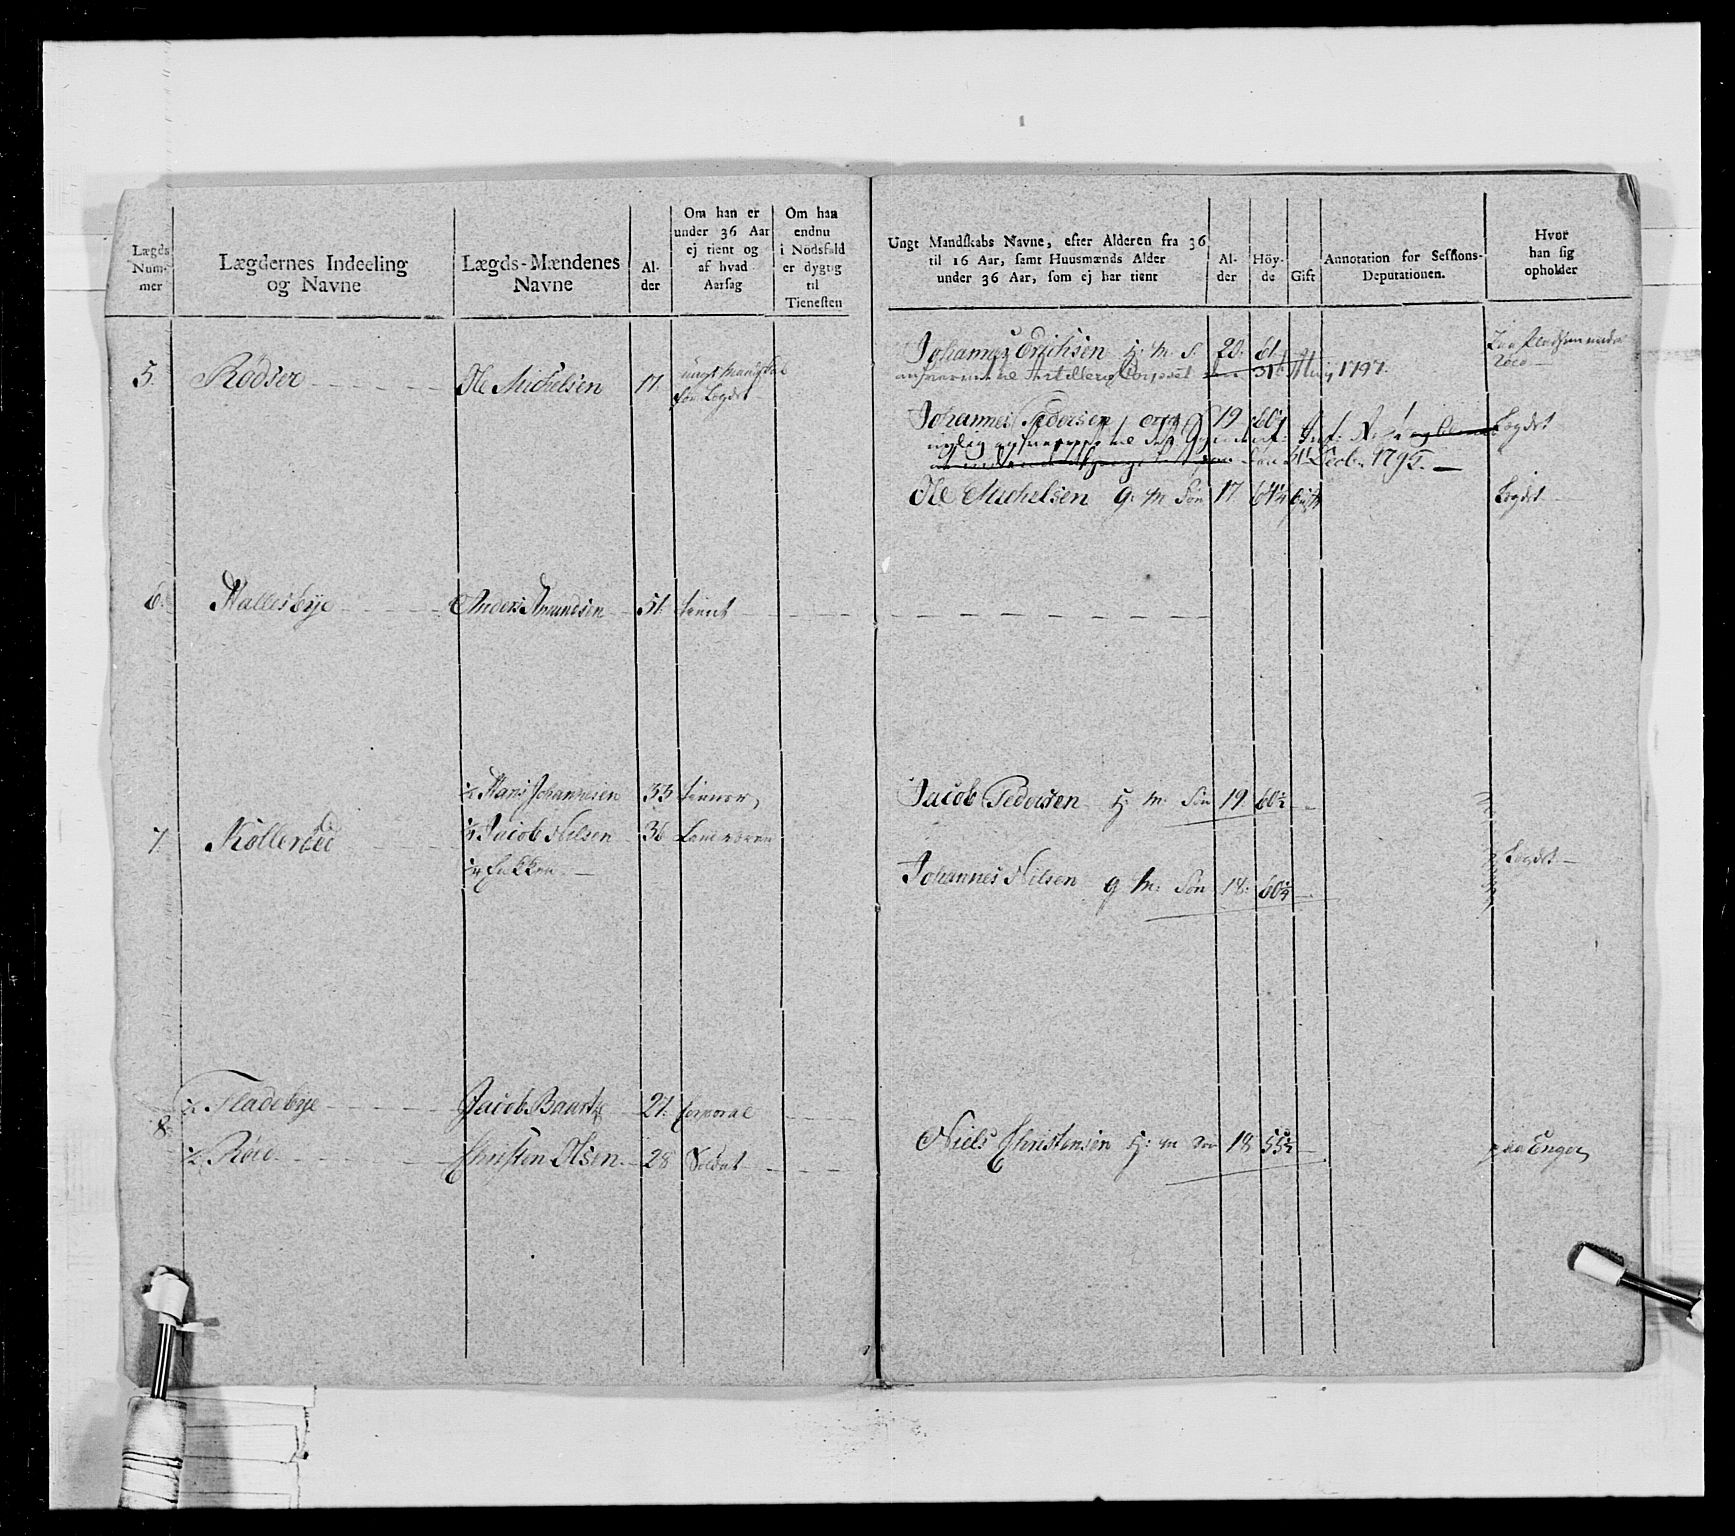 Lægds Num-mer
Lægdernes Indeeling og Navne
Lægds-Mændenes Navne
Al-der
Om han er under 36 Aar ej tient og af hvad Aarsag
Om han endnu i Nödsfald er dygtig til Tienesten
Ungt Mandskabs Navne, efter Alderen fra 36 til 16 Aar, samt Huusmænds Alder under 36 Aar, som ej har tient
Al-der
Höy-de
Gift
Annotation for Sessions-Deputationen.
Hvor han sig opholder
5. Rödser Ole Michelsen 17. ungt Mandskab
for Legdet
Johannes Erichsen H: M: S. 20. 61
Artillerie Corpset 31 May 1797.
Johannes Pedersen 19 60½ Legdet
31 Decbr. 1795.
Ole Michelsen g: M Søn 17 61¼ Legdet
6. Hallesbye Anders Amundsen 51. tient
½ Hans Johannesen 33 tiener
Jacob Pedersen H: M: Søn 19. 60½
7. Kölleröed ¼ Jacob Nilsen 36
¼ Enkken
Johannes Nilsen g M: Søn 18. 60¾ Legdet
8. ½ Fladebye Jacob Bautz 27. Corporal
½ Röed Christen Olsen 28 Soldat
Niels Christensen H: M Søn 18 55½ paa Enger